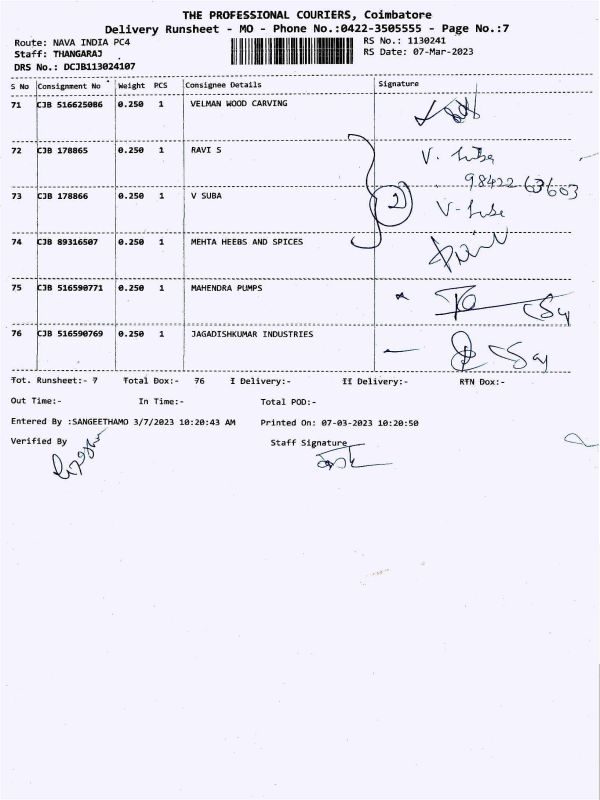 THE PROFESSIONAL COURIERS, Coimbatore
Delivery Runsheet - MO - Phone No.:0422-3505555 - Page No.:7
Route: NAVA INDIA PC4 RS No.: 1130241
Staff: THANGARAJ RS Date: 07-Mar-2023
DRS No.: DCJB113024107
S No Consignment No Weight PCS Consignee Details Signature
71 CJB 516625086 0.250 1 VELMAN WOOD CARVING
72 CJB 178865 0.250 1 RAVI S V. Suba
98422 63603
73 CJB 178866 0.250 1 V SUBA 2 V-Suba
74 CJB 89316507 0.250 1 MEHTA HEEBS AND SPICES
75 CJB 516590771 0.250 1 MAHENDRA PUMPS
76 CJB 516590769 0.250 1 JAGADISHKUMAR INDUSTRIES
Tot. Runsheet:- 7 Total Dox:- 76 I Delivery:- II Delivery:- RTN Dox:-
Out Time:- In Time:- Total POD:-
Entered By :SANGEETHAMO 3/7/2023 10:20:43 AM Printed On: 07-03-2023 10:20:50
Verified By Staff Signature